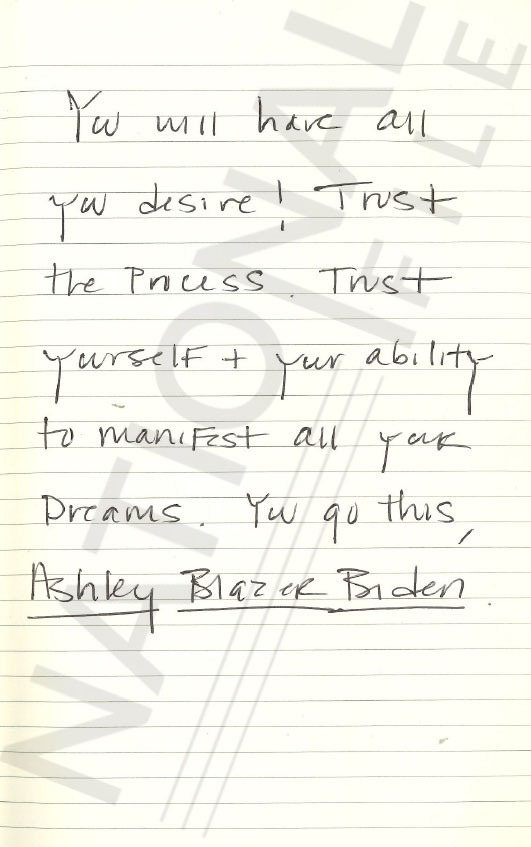 You will have all
you desire! Trust
the Process. Trust
yourself + your ability
to manifest all your
Dreams. You go this,
Ashley Blazer Biden.
NATIONAL
FILE